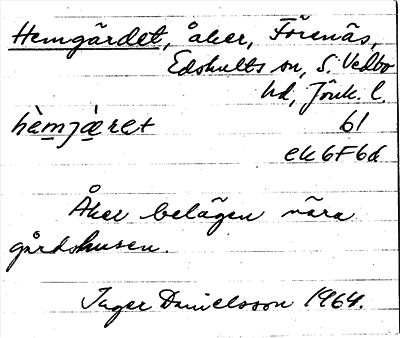 Hemgärdet, åker, Förenäs,
Edshults sn, S. Vedbo
hd, Jönk. l.
hèmjæ̀ret 61
ek 6F6d
Åker belägen nära
gårdshusen.
Inger Danielsson 1964.